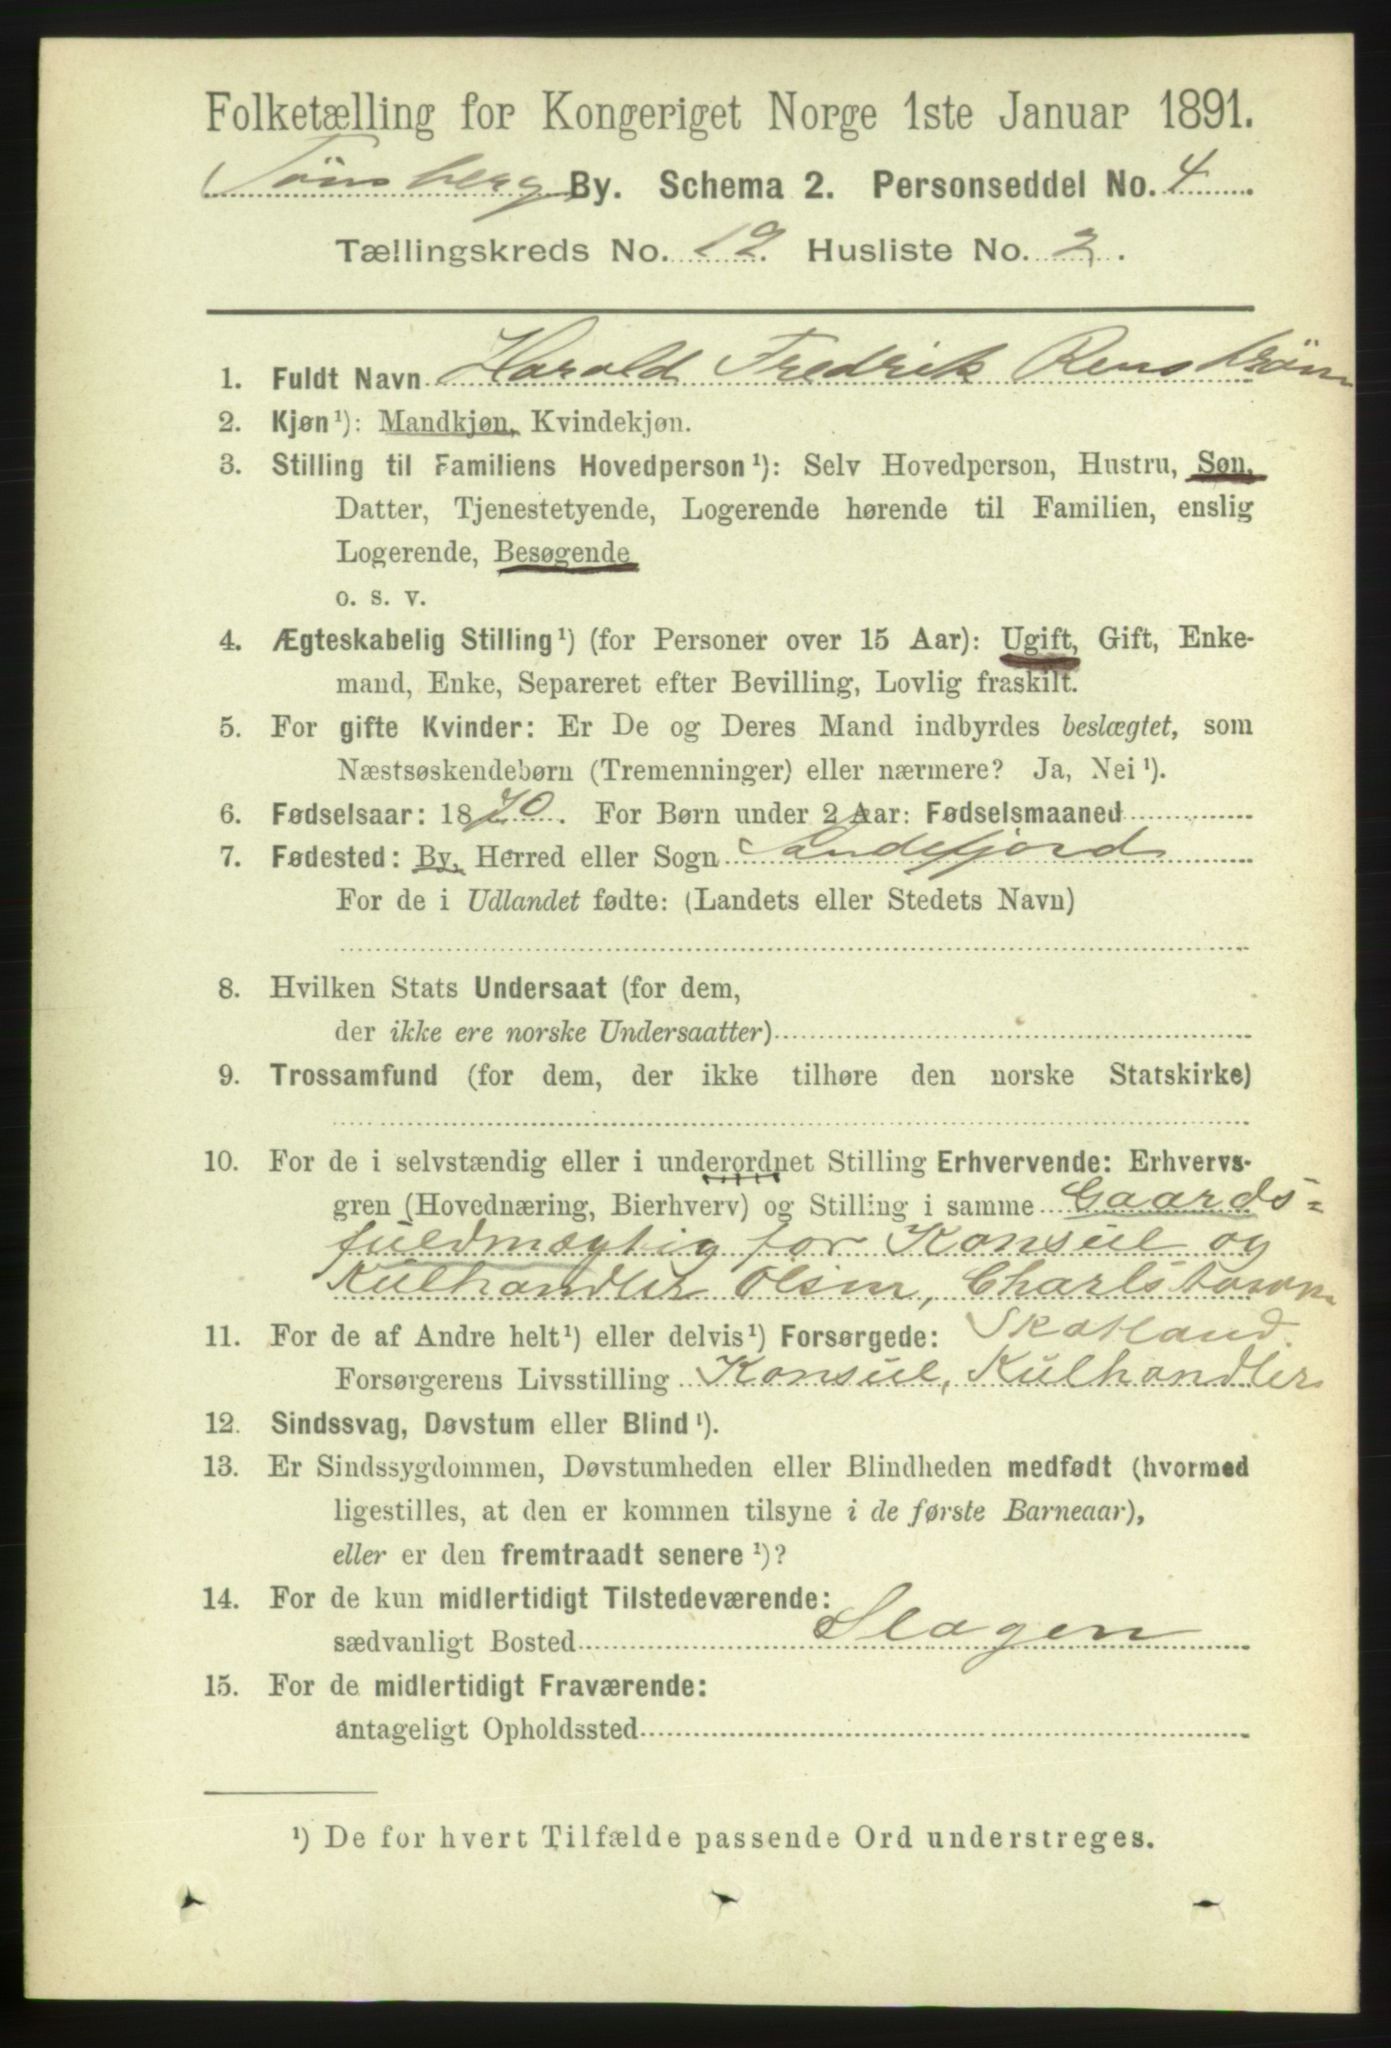 Folketælling for Kongeriget Norge 1ste Januar 1891.
Tönsberg By. Schema 2. Personseddel No. 4
Tællingskreds No. 12. Husliste No. 2.
1. Fuldt Navn Harald Fredrik Renström
2. Kjøn¹): Mandkjøn, Kvindekjøn.
3. Stilling til Familiens Hovedperson¹): Selv Hovedperson, Hustru, Søn,
Datter, Tjenestetyende, Logerende hørende til Familien, enslig
Logerende, Besøgende
o. s. v.
4. Ægteskabelig Stilling¹) (for Personer over 15 Aar): Ugift, Gift, Enke-
mand, Enke, Separeret efter Bevilling, Lovlig fraskilt.
5. For gifte Kvinder: Er De og Deres Mand indbyrdes beslægtet, som
Næstsøskendebørn (Tremenninger) eller nærmere? Ja, Nei¹).
6. Fødselsaar: 1870. For Børn under 2 Aar: Fødselsmaaned
7. Fødested: By, Herred eller Sogn Sandefjord
For de i Udlandet fødte: (Landets eller Stedets Navn)
8. Hvilken Stats Undersaat (for dem,
der ikke ere norske Undersaatter)
9. Trossamfund (for dem, der ikke tilhøre den norske Statskirke)
10. For de i selvstændig eller i underordnet Stilling Erhvervende: Erhvervs-
gren (Hovednæring, Bierhverv) og Stilling i samme Gaards=
fuldmægtig for Konsul og
Kulhandler Olsen, Charlstown
Skotland.
11. For de af Andre helt¹) eller delvis¹) Forsørgede:
Forsørgerens Livsstilling Konsul, Kulhandler
12. Sindssvag, Døvstum eller Blind¹).
13. Er Sindssygdommen, Døvstumheden eller Blindheden medfødt (hvormed
ligestilles, at den er kommen tilsyne i de første Barneaar),
eller er den fremtraadt senere¹)?
14. For de kun midlertidigt Tilstedeværende:
sædvanligt Bosted Slagen
15. For de midlertidigt Fraværende:
antageligt Opholdssted
¹) De for hvert Tilfælde passende Ord understreges.